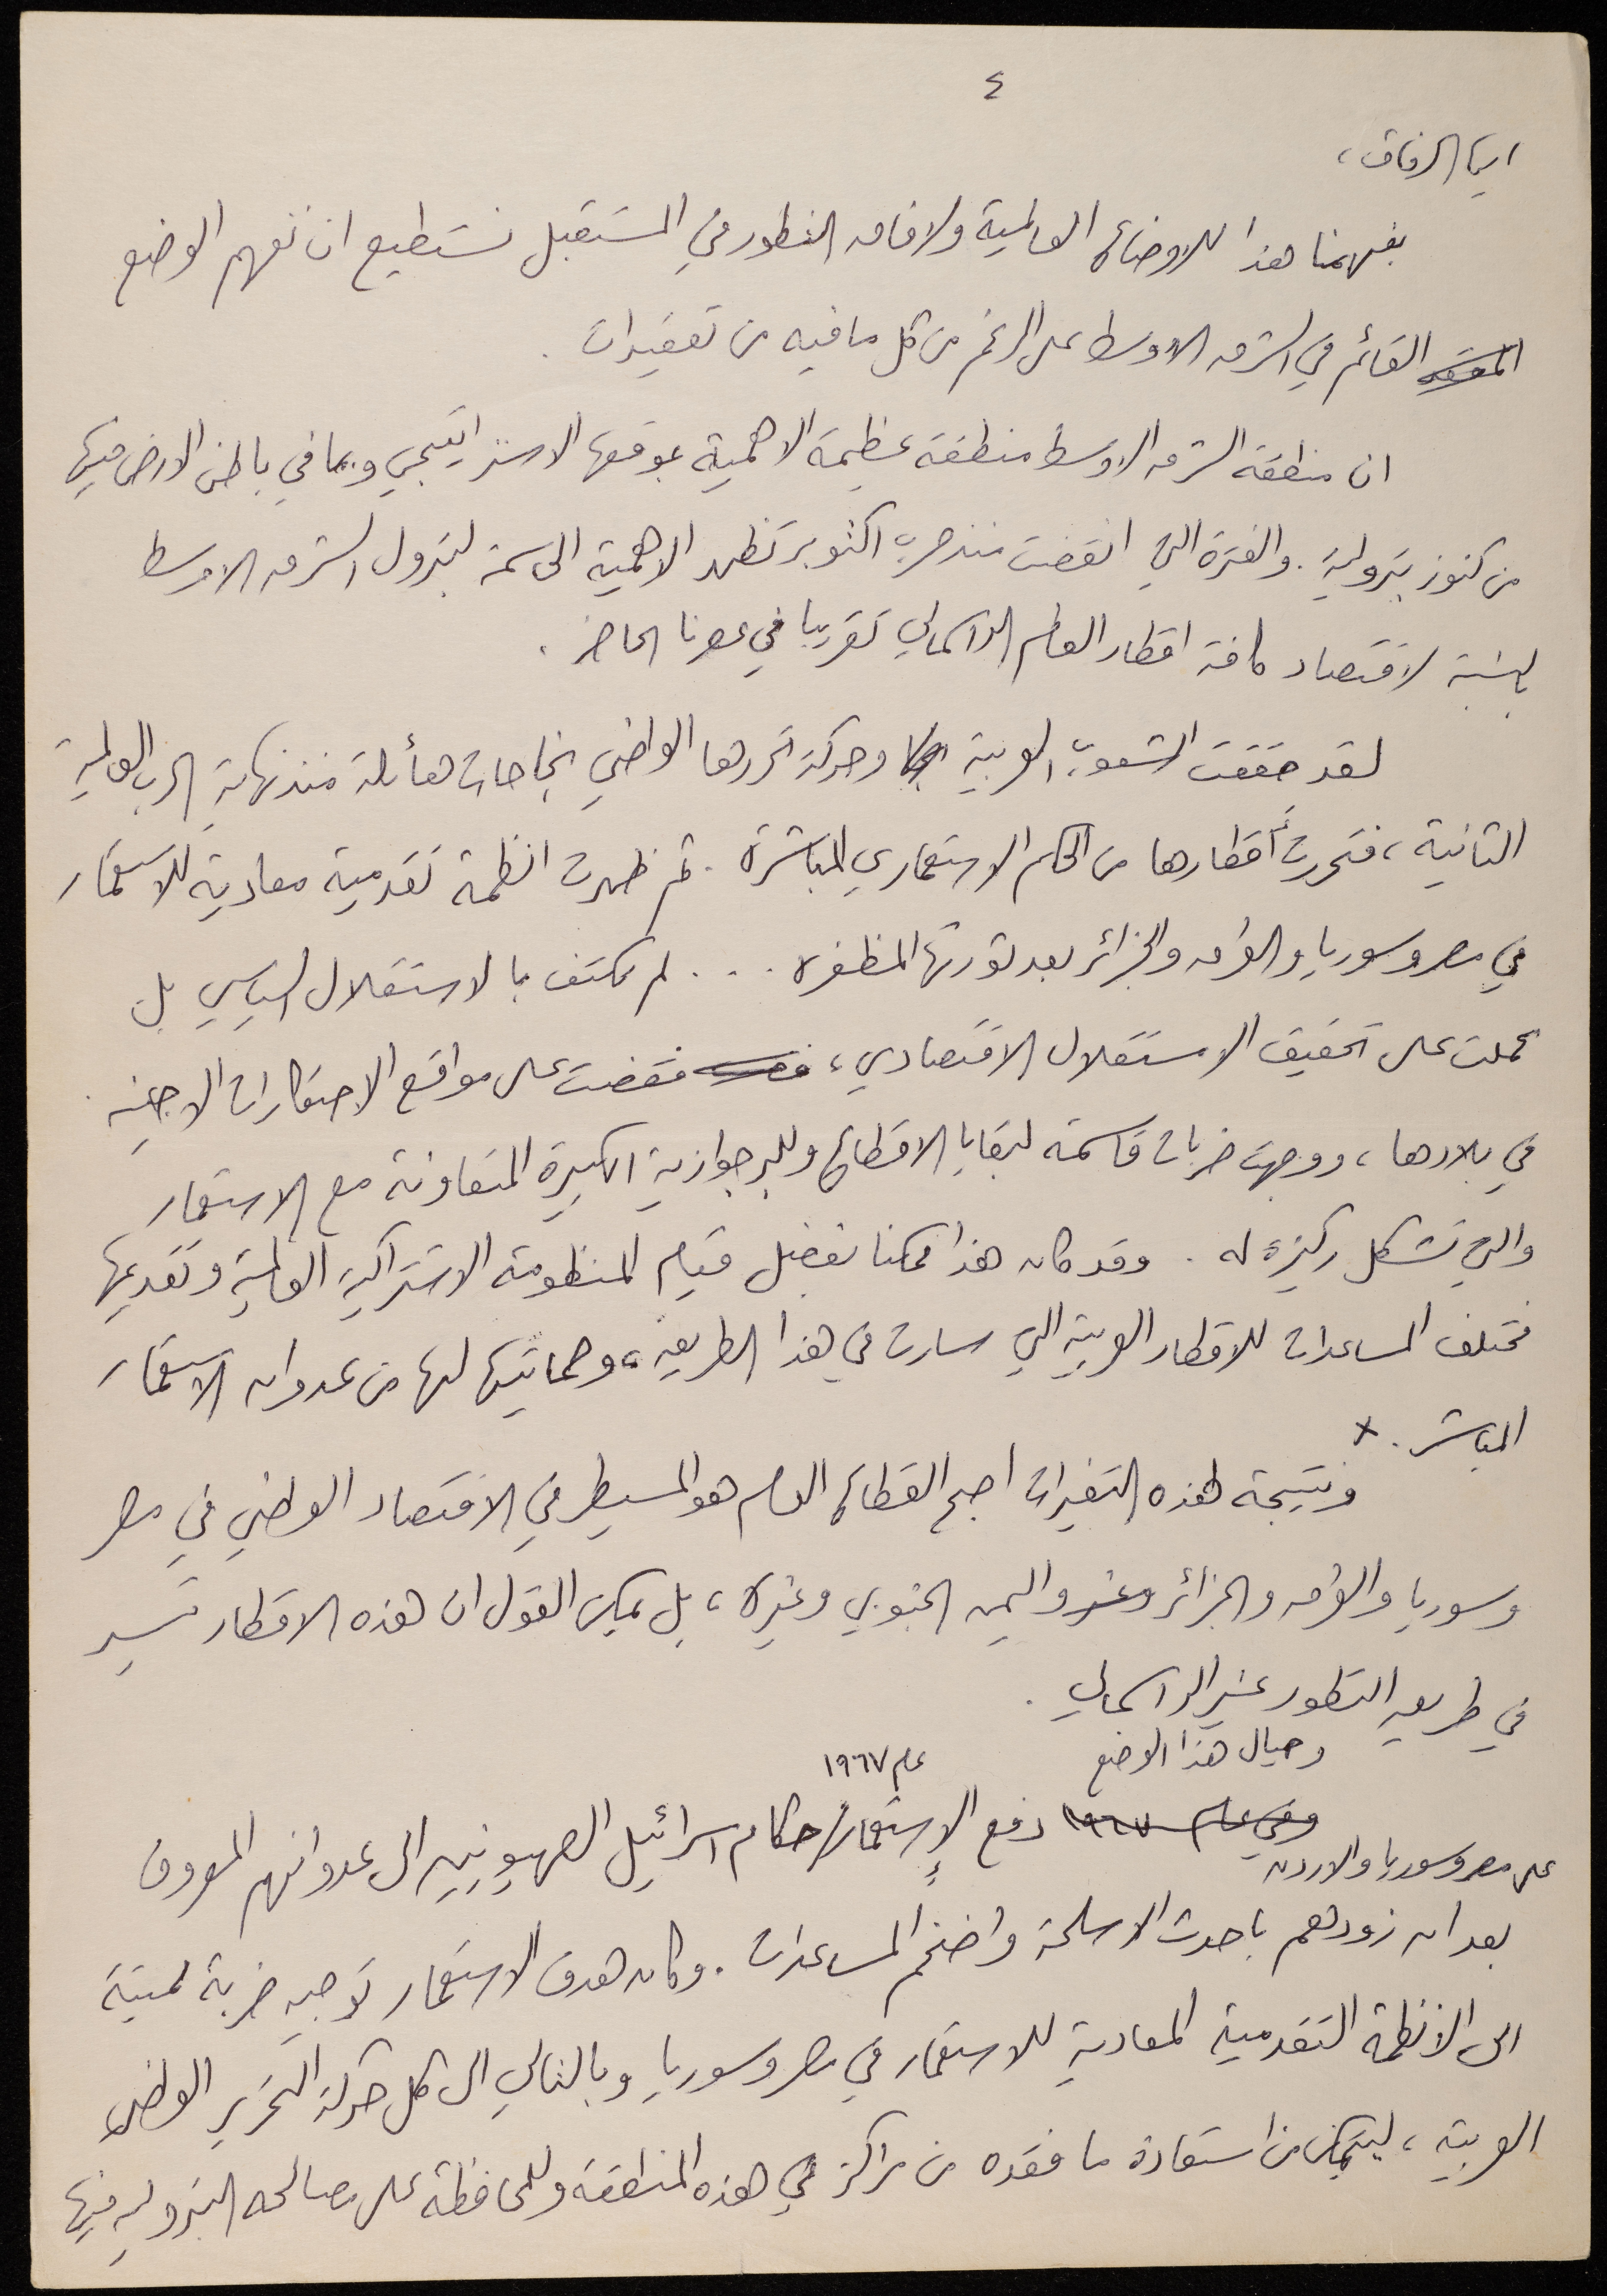 ٤
ايها الرفاق،
بفهمنا هذا للاوضاع العالمية ولافاق التطور في المستقبل نستطيع ان نفهم الوضع
القائم في الشرق الاوسط على الرغم من كل ما فيه من تعقيدات.
ان منطقة الشرق الاوسط منطقة عظيمة الاهمية بموقعها الاستراتيجي وبما في باطن الارض فيها
من كنوز بترولية. والفترة التي انقضت منذ حرب اكتوبر تظهر الاهمية الحاسمة لبترول الشرق الاوسط
بالنسبة لاقتصاد كافة اقطار العالم الرأسمالي تقريبا في عصرنا الحاضر.
لقد حققت الشعوب العربية وحركة تحررها الوطني نجاحات هائلة منذ نهاية الحرب العالمية
الثانية، فتحررت أقطارها من الحكم الاستعماري المباشرة. ثم ظهرت انظمة تقدمية معادية للاستعمار
في مصر وسوريا والعراق والجزائر بعد ثورتها المظفره ... لم تكتف بالاستقلال السياسي بل
عملت على تحقيق الاستقلال الاقتصادي، فقضت على مواقع الاحتكارات الاجنبيه
في بلادها، ووجهت ضربات قاسمة لبقايا الاقطاع وللبرجوازية الكبيرة المتعاونة مع الاستعمار
والتي تشكل ركيزة له. وقد كان هذا ممكنا بفضل قيام المنظومة الاشتراكية العالمية وتقديمها
مختلف المساعدات للاقطار العربية التي سارت في هذا الطريق، وحمايتها لها من عدوان الاستعمار
المباشر. x
ونتيجة لهذه التغيرات اصبح القطاع العام هو المسيطر في الاقتصاد الوطني في مصر
وسوريا والعراق والجزائر واليمن الجنوبي وغيره، بل يمكن القول ان هذه الاقطار تسير
في طريق التطور غير الرأسمالي.
وحيال هذا الوضع
عام ١٩٦٧
وفي عام ١٩٦٧ دفع الإستعمار حكام اسرائيل الصهيونيين الى عدوانهم المعروف
على مصر وسوريا والاردن
بعد ان زودهم باحدث الاسلحة واضخم المساعدات. وكان هدف الاستعمار توجيه ضربة مميتة
الى الانظمة التقدمية المعادية للاستعمار في مصر وسوريا وبالتالي الى كل حركة التحرير الوطني
العربية، ليتمكن من استعادة ما فقده من مراكز في هذه المنطقة وللمحافظة على مصالحه البترولية فيها